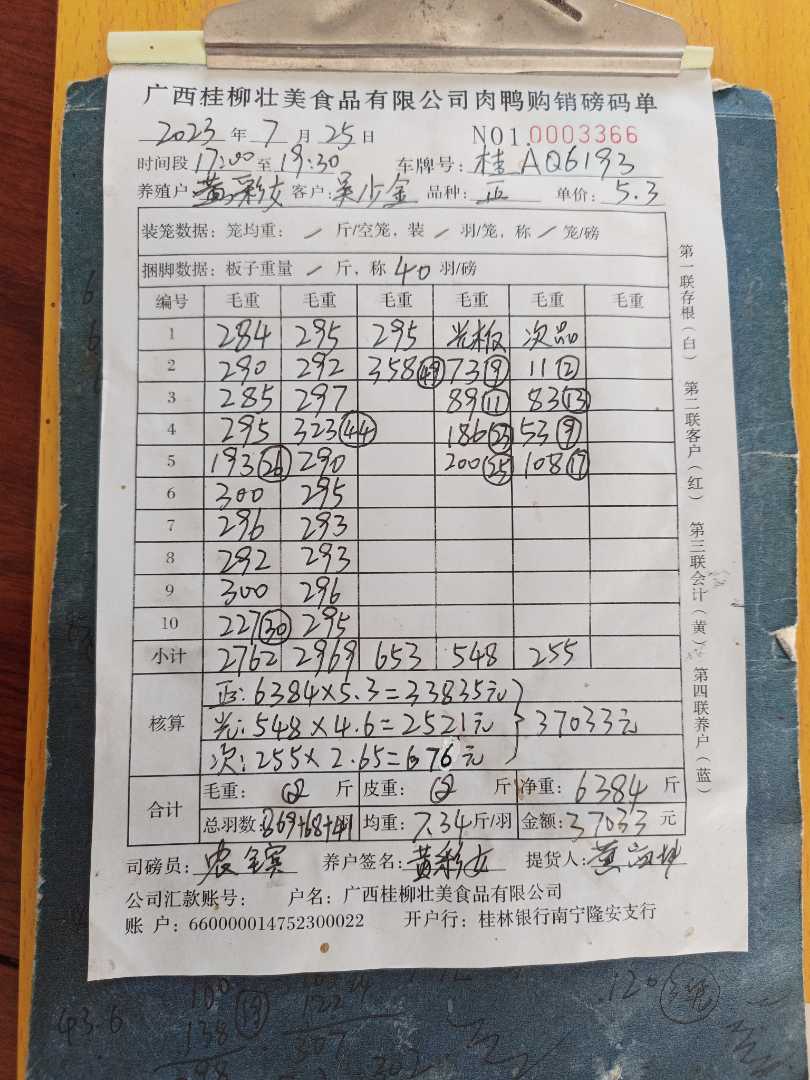 广西桂柳壮美食品有限公司肉鸭购销磅码单
2023 年 7 月 25 日 NO1.0003366
时间段 17:00 至 19:30 车牌号: 桂AQ6193
养殖户: 黄彩女 客户: 吴少金 品种: 正 单价: 5.3
装笼数据: 笼均重: / 斤/空笼, 装 / 羽/笼, 称 / 笼/磅
捆脚数据: 板子重量 / 斤, 称 40 羽/磅
编号 毛重 毛重 毛重 毛重 毛重 毛重
1 284 295 295 光板 次品
2 290 292 358 49 73 9 11 2
3 285 297 89 11 83 13
4 295 323 44 186 23 53 9
5 193 26 290 200 25 108 17
6 300 295
7 296 293
8 292 293
9 300 296
10 227 30 295
小计 2762 2969 653 548 255
核算
正: 6384×5.3=33835元
光: 548×4.6=2521元 } 37033元
次: 255×2.65=676元
合计
毛重: 斤 皮重: 斤 净重: 6384 斤
总羽数: 869+68+41 羽 均重: 7.34 斤/羽 金额: 37033 元
司磅员: 养户签名: 黄彩女 提货人: 黄
公司汇款账号: 户名: 广西桂柳壮美食品有限公司
账 户: 660000014752300022 开户行: 桂林银行南宁隆安支行
第一联存根(白) 第二联客户(红) 第三联会计(黄) 第四联养户(蓝)
43.6
100
138
298
122
307
302
120